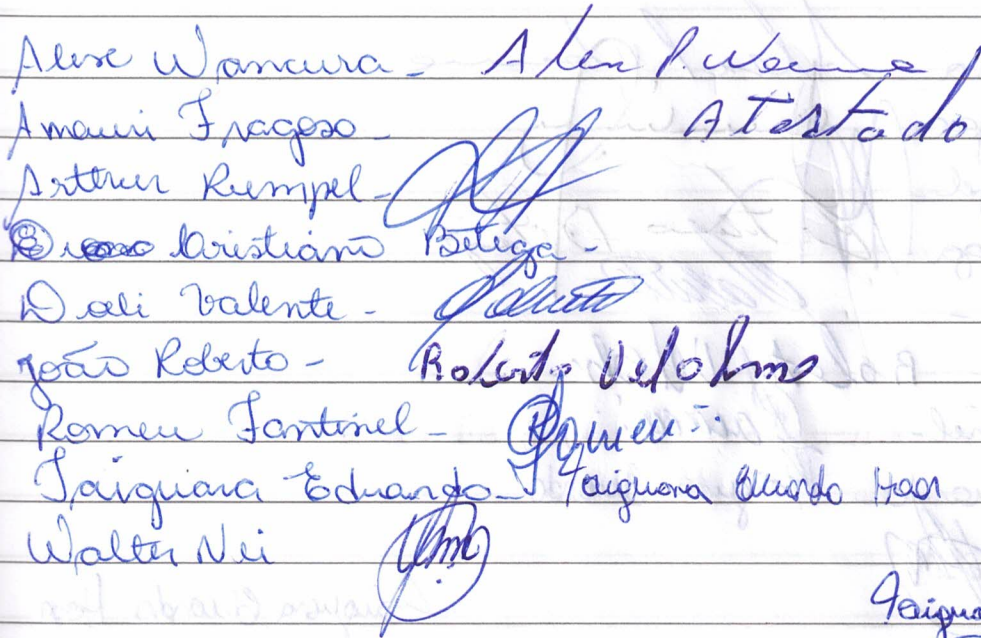 Alex Wancura - Alex P. Wancura
Amauri Fragoso - Atestado
Arthur Rumpel -
Cristiano Betega -
Dali Valente -
João Roberto - Roberto
Romeu Fantinel - Romeu
Taiguara Eduardo - Taiguara Eduardo Haas
Walter Nei
Taigua